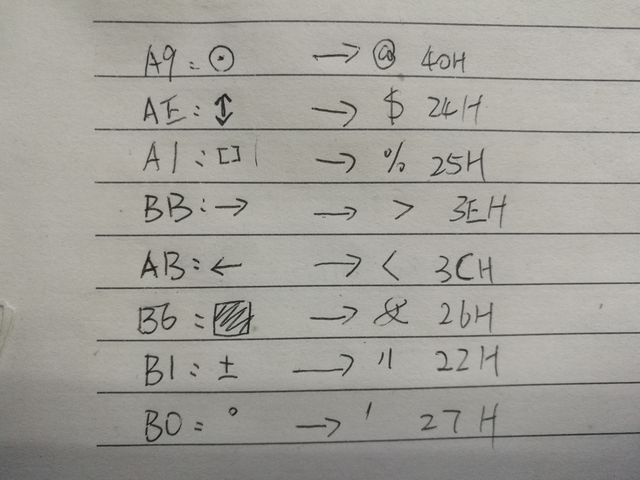 A9: ⊙ → @ 40H
AE: ↕ → $ 24H
A1: [] | → % 25H
BB: → → > 3EH
AB: ← → < 3CH
B6: ▨ → & 26H
B1: ± → " 22H
B0: ° → ' 27H